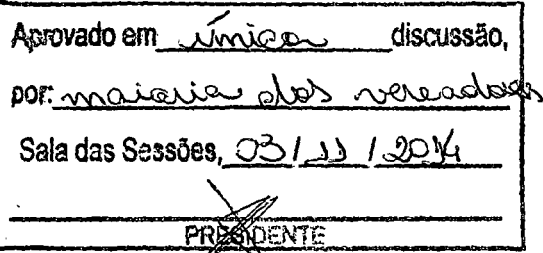 Aprovado em única discussão,
por: maioria dos vereadores
Sala das Sessões, 03/11/2014
PRESIDENTE